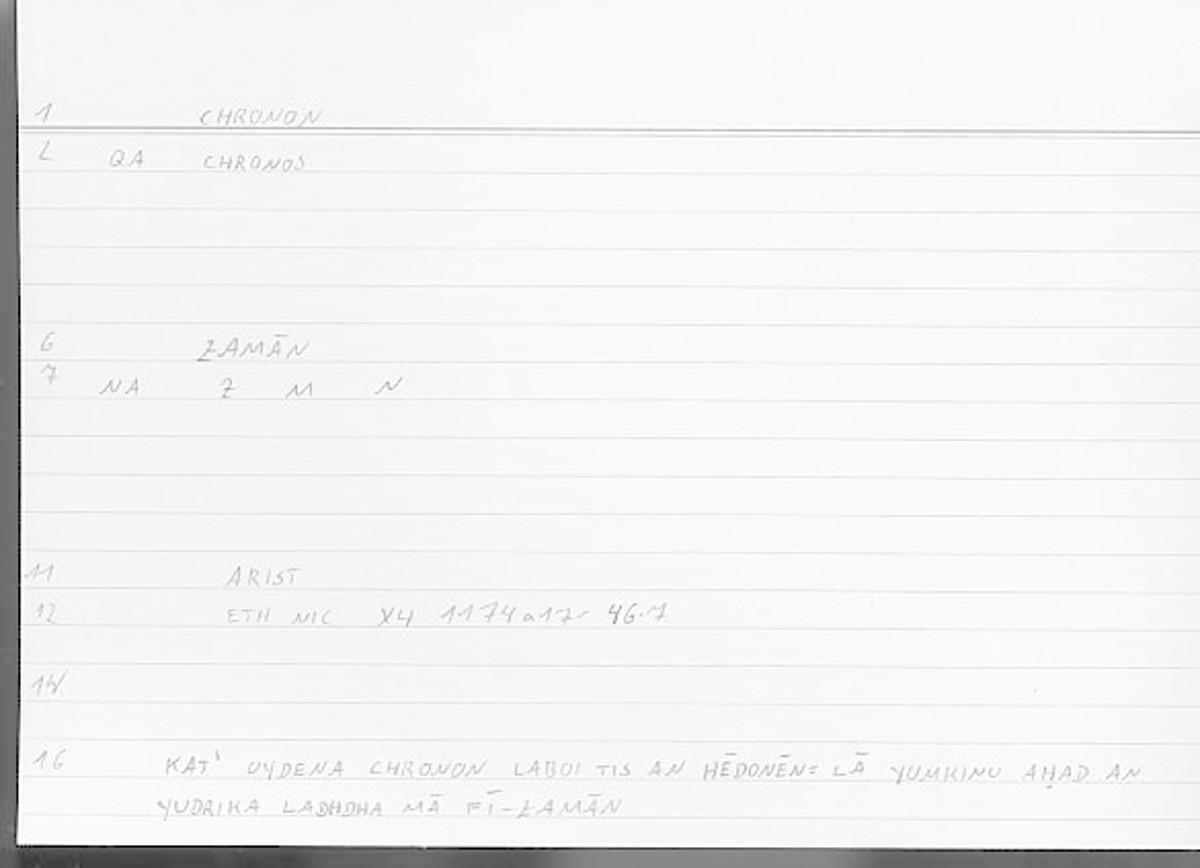 1 CHRONON
2 QA CHRONOS
6 ZAMĀN
7 NA Z M N
11 ARIST
12 ETH NIC X4 1174a17= 46.7
14
16 KAT' OYDENA CHRONON LABOI TIS AN HĒDONĒN= LĀ YUMKINU AḤAD AN
YUDRIKA LADHDHA MĀ FĪ-ZAMĀN